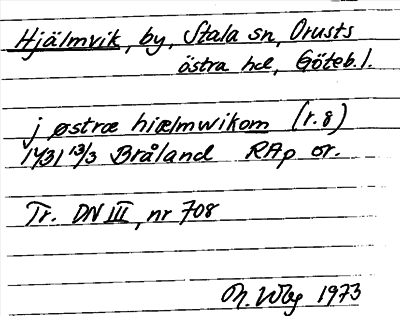 Hjälmvik, by, Stala sn, Orusts
östra hd, Göteb.l.
j østræ hiælmwikom (r.8)
1431 13/3 Bråland RAp or.
Tr. DN III, nr 708
1973